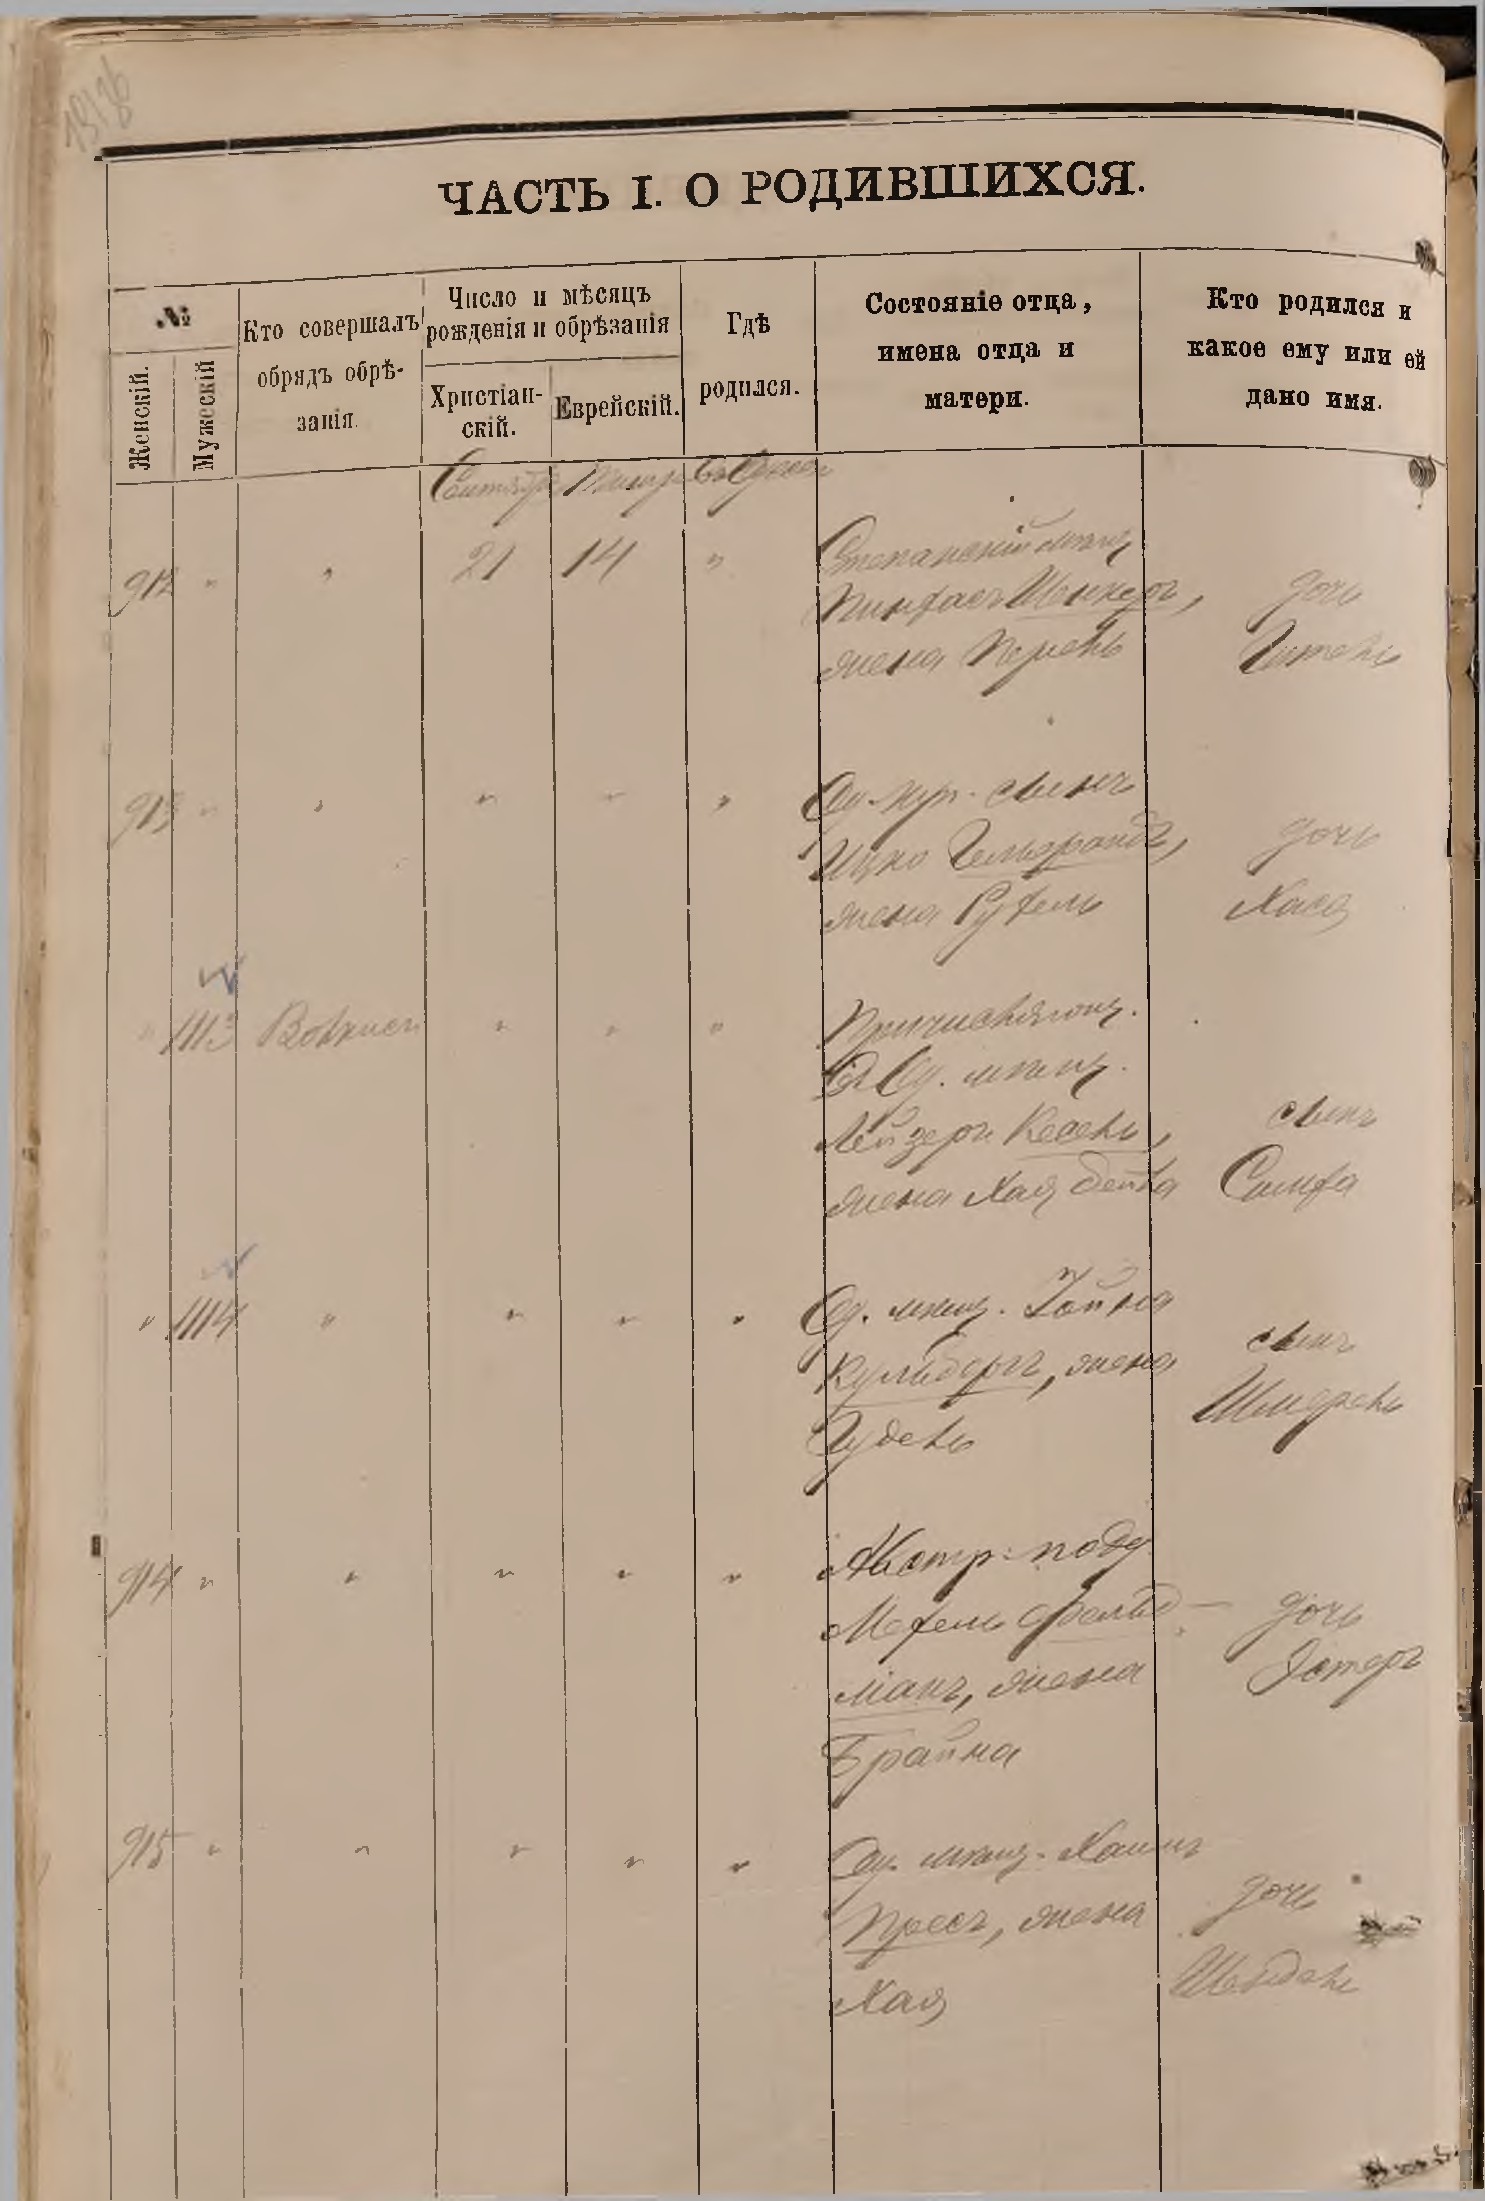 ЧАСТЬ I. О РОДИВШИХСЯ.
№
Женскій.
Мужескій
Кто совершалъ
обрядъ обрѣ-
занія.
Число и мѣсяцъ
рожденія и обрѣзанія
Христіан-
скій.
Еврейскій.
Гдѣ
родился.
Состояніе отца,
имена отца и
матери.
Кто родился и
какое ему или ей
дано имя.
Сентябр Тишр Въ Одессе
912 " " 21 14 "
Степанскій мѣщ
Пинхасъ Шенкеръ,
жена Перель
дочь
Гитель
913 " " " " "
Од. куп. сынъ
Ицко Гельбрандъ,
жена Рухель
дочь
Хася
" 1113 " " "
Причисляющ.
въ Од. мѣщ.
Лейзеръ Кесель,
жена Хая Бейла
сынъ
Симха
" 1114 " " " "
Од. мѣщ. Хоина
Кульбергъ, жена
Гудель
сынъ
Шмерель
914 " " " " "
Австр. подд.
Мехель Фельд-
манъ, жена
Брайна
дочь
Эстеръ
915 " " " " "
Од. мѣщ. Хаимъ
Пресъ, жена
Хая
дочь
Шендель